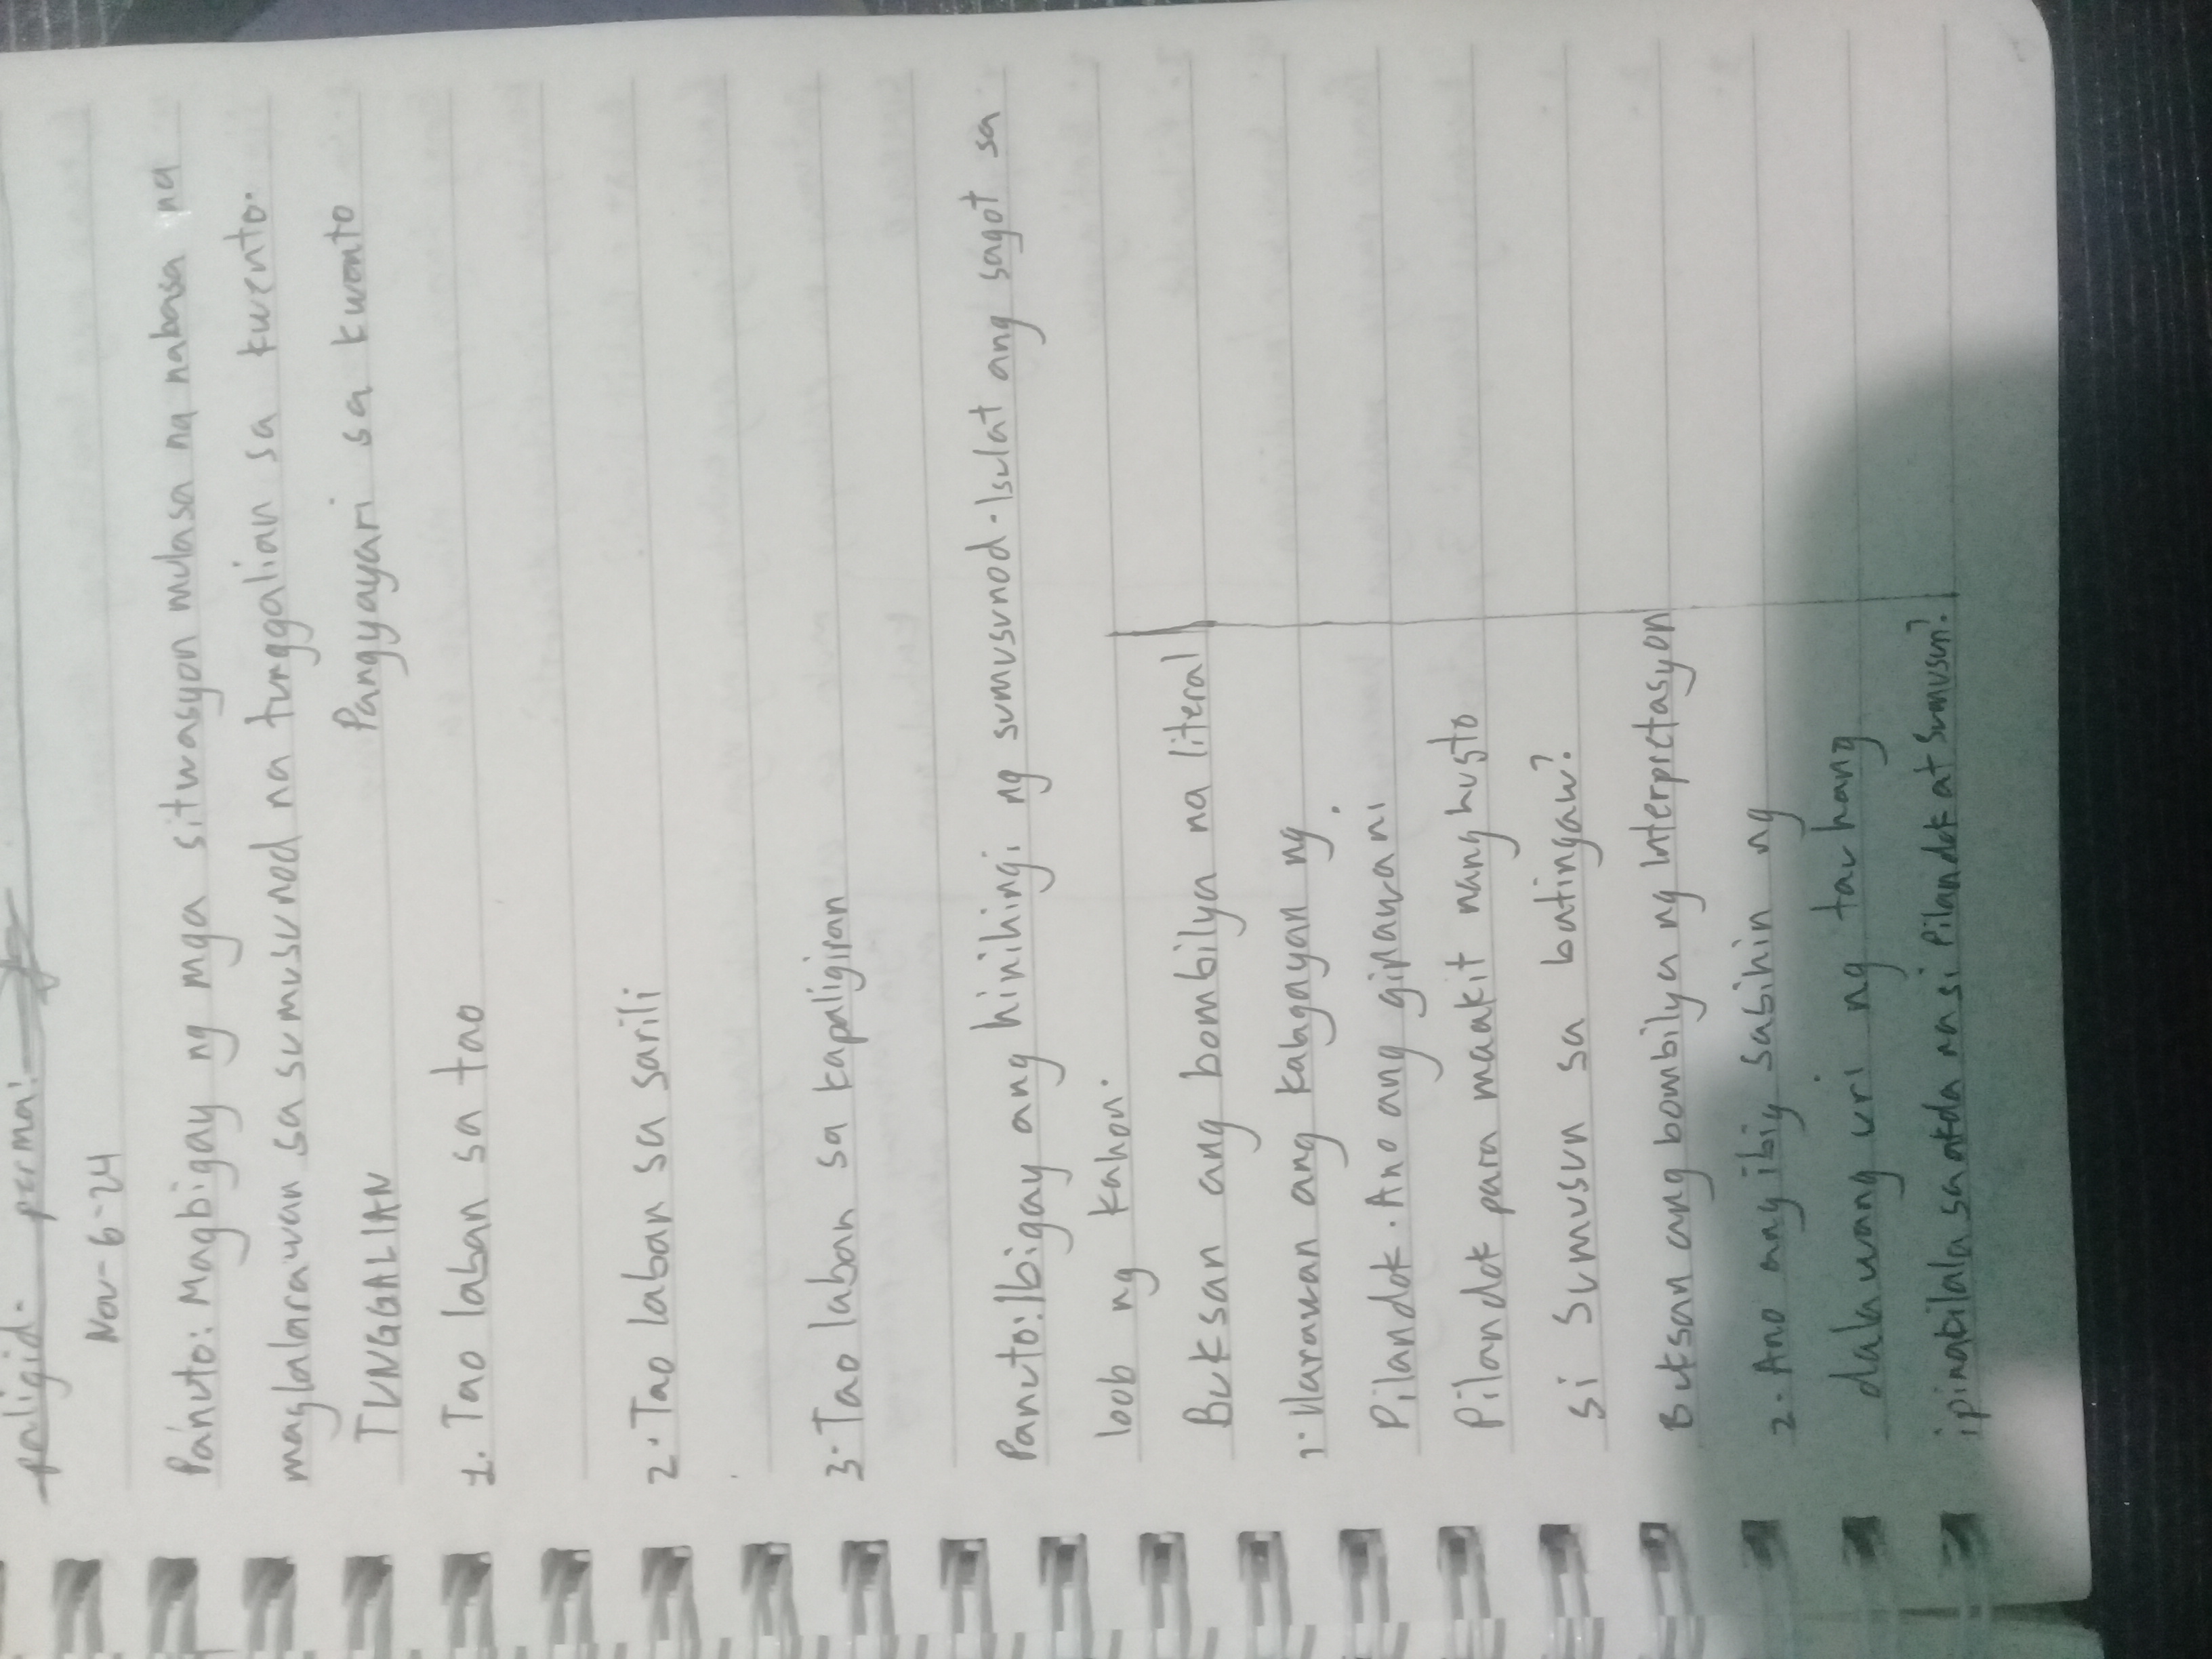 paligid. perma:
Nov-6-24
Panuto: Magbigay ng mga sitwasyon mulasa na nabasa na
maglalarawan sa sumusunod na tunggalian sa kwento.
TUNGGALIAN Pangyayari sa kwento
1. Tao laban sa tao
2. Tao laban sa sarili
3. Tao laban sa kapaligiran
Panuto: Ibigay ang hinihingi ng sumusunod. Isulat ang sagot sa
loob ng kahon.
Buksan ang bombilya na literal
1. Ilarawan ang kalagayan ng
Pilandok. Ano ang ginawa ni
Pilandok para maakit nang husto
si Sumusun sa batingaw?
Buksan ang bombilya ng Interpretasyon
2. Ano ang ibig sabihin ng
dalawang uri ng tauhang
ipinakilala sa akda na si Pilandok at Sumusun?